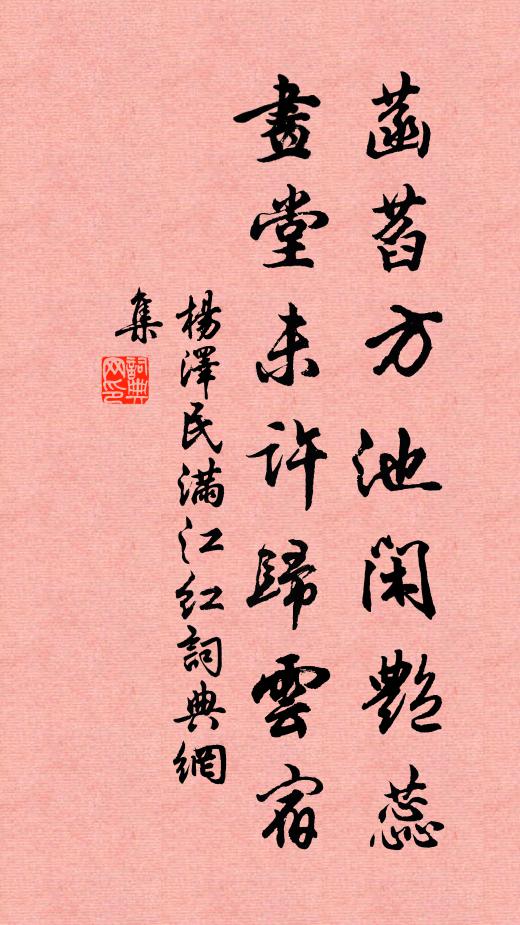 菡萏方池閑艷蕊
畫堂未許歸雲宿
楊澤民滿江紅詞典網
集
詞典
网印